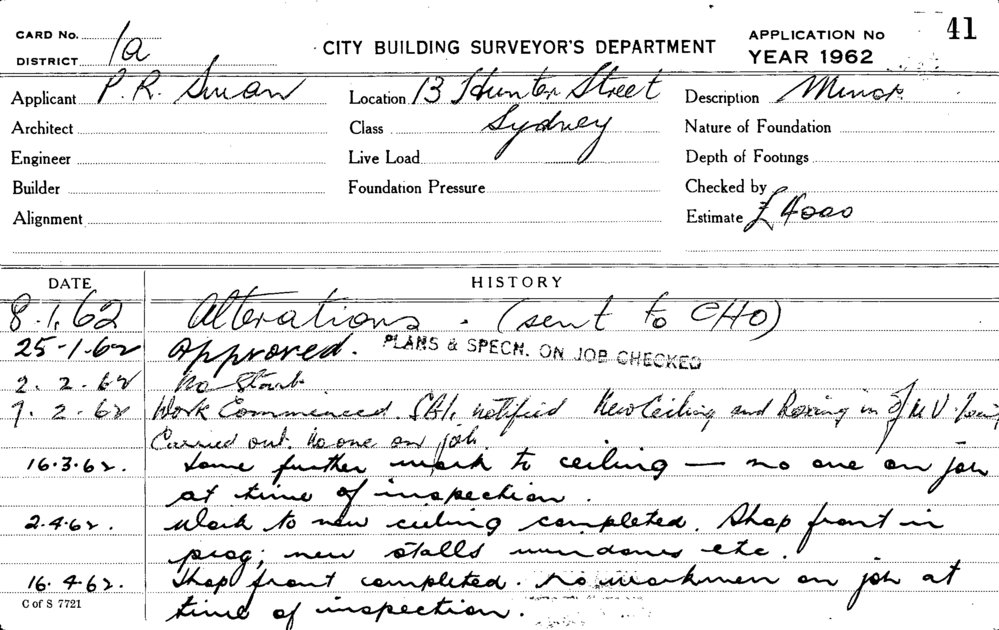 CARD No. 1a
DISTRICT
CITY BUILDING SURVEYOR'S DEPARTMENT
APPLICATION No 41
YEAR 1962
Applicant P. R. Swan
Location 13 Hunter Street
Description Minor
Architect
Class Sydney
Nature of Foundation
Engineer
Live Load
Depth of Footings
Builder
Foundation Pressure
Checked by
Alignment
Estimate £4000
DATE HISTORY
8.1.62 Alterations. (sent to CHO)
25-1-62 Approved. PLANS & SPECN. ON JOB CHECKED
2.2.62 No Start.
7.2.62 Work Commenced. notified New Ceiling and Boxing in of M V
Carried out. No one on job.
16.3.62. Some further work to ceiling — no one on job
at time of inspection.
2.4.62. Work to new ceiling completed. Shop front in
prog; new stalls windows etc.
16.4.62. Shop front completed. No workmen on job at
C of S 7721
time of inspection.